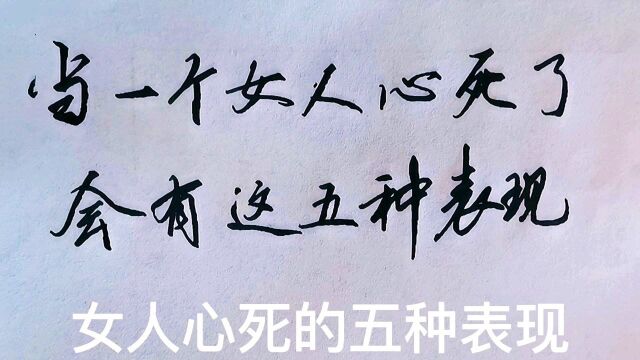 当一个女人心死了
会有这五种表现
女人心死的五种表现